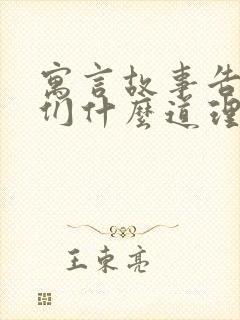 寓言故事告
们什麼道理
王東亮